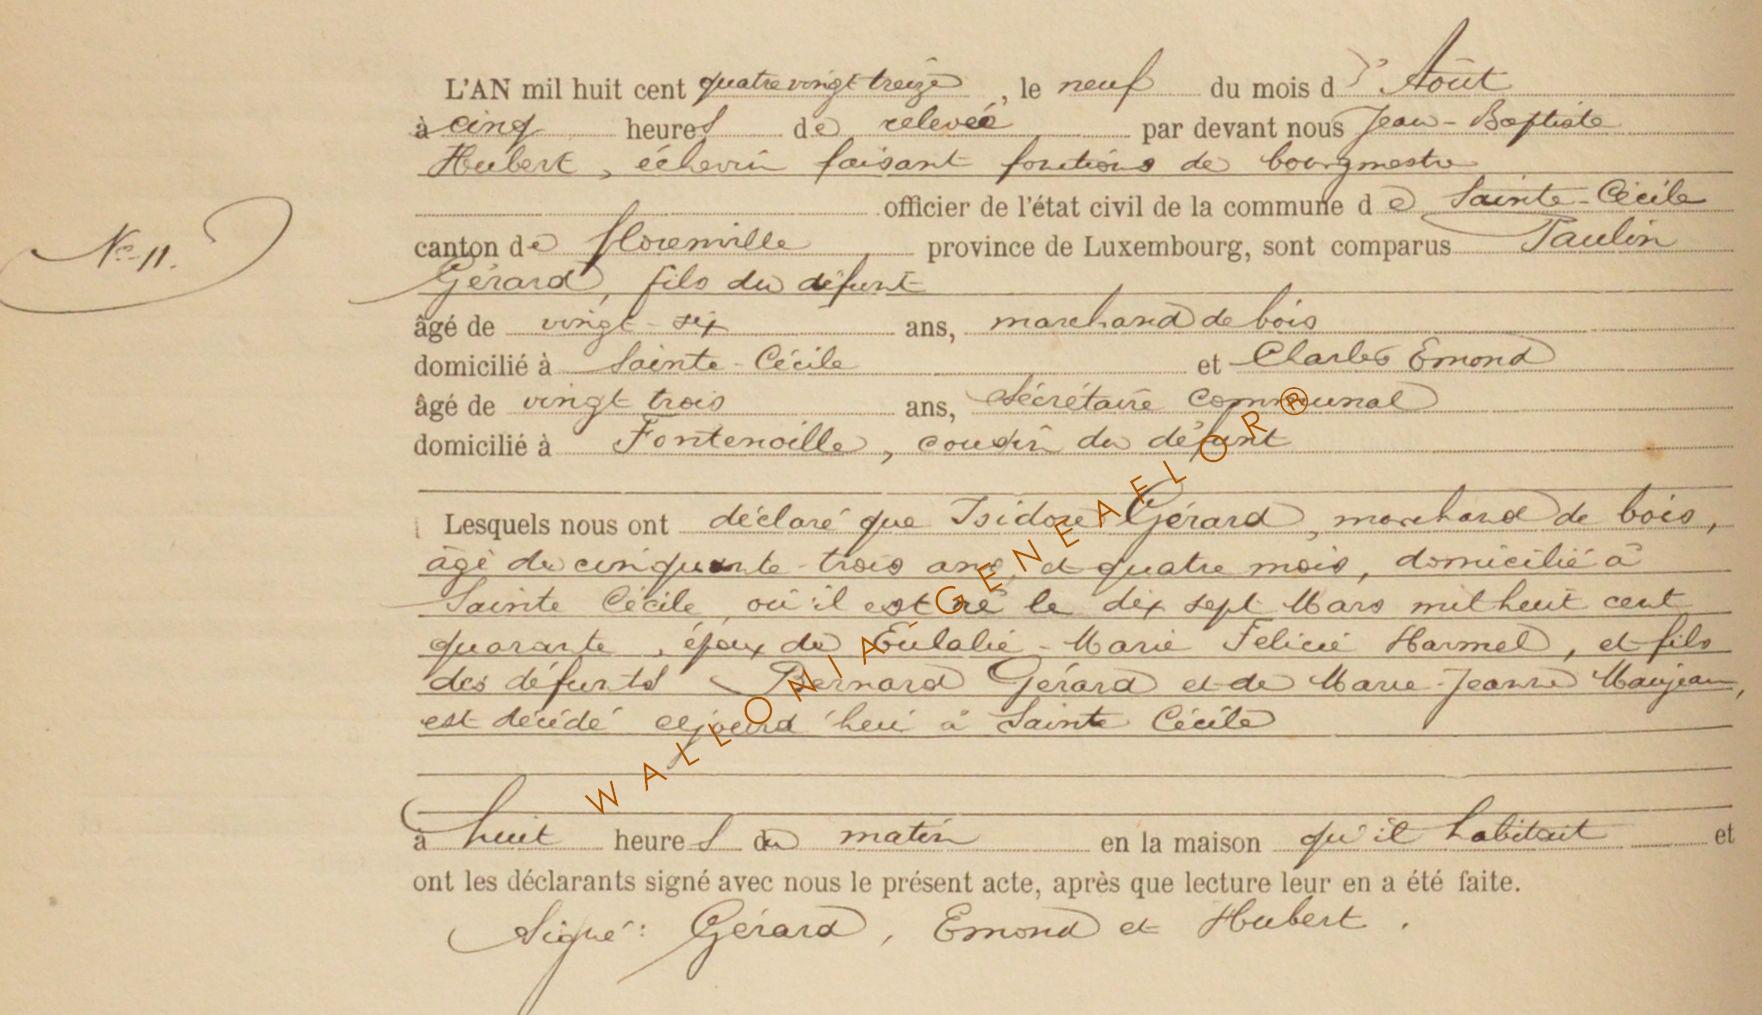 L'AN mil huit cent quatre vingt treize, le neuf du mois d'Août
à cinq heures de relevée par devant nous Jean-Baptiste
Hubert, échevin faisant fonctions de bourgmestre
officier de l'état civil de la commune de Sainte-Cécile
N° 11.
canton de Florenville province de Luxembourg, sont comparus Paulin
Gérard, fils du défunt
âgé de vingt-six ans, marchand de bois
domicilié à Sainte-Cécile et Charles Emond
âgé de vingt trois ans, Sécrétaire communal
domicilié à Fontenoille, cousin du défunt
Lesquels nous ont déclaré que Isidore Gérard, marchand de bois,
âgé de cinquante-trois ans, et quatre mois, domicilié à
Sainte Cécile où il est né le dix sept Mars mil huit cent
quarante, époux de Eulalie-Marie Felicie Harmel, et fils
des défunts Bernard Gérard et de Marie-Jeanne Maujean,
est décédé aujourd'hui à Sainte Cécile
à huit heures du matin en la maison qu'il habitait et
ont les déclarants signé avec nous le présent acte, après que lecture leur en a été faite.
Signé: Gérard, Emond et Hubert.
WALLONIA-GENEAFLOR®